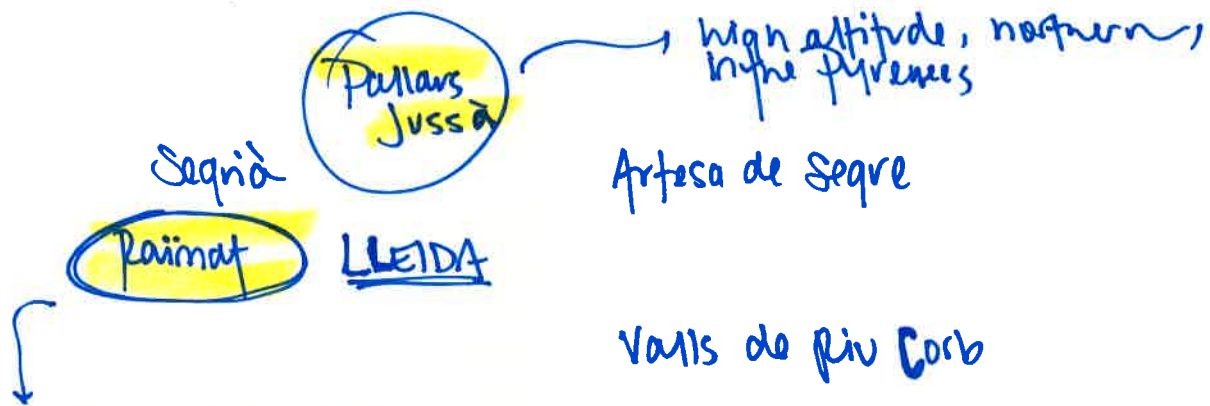 Pallars
Jussà
high altitude, northern,
in the Pyrenees
Segrià
Artesa de Segre
Raïmat
LLEIDA
Valls de Riu Corb